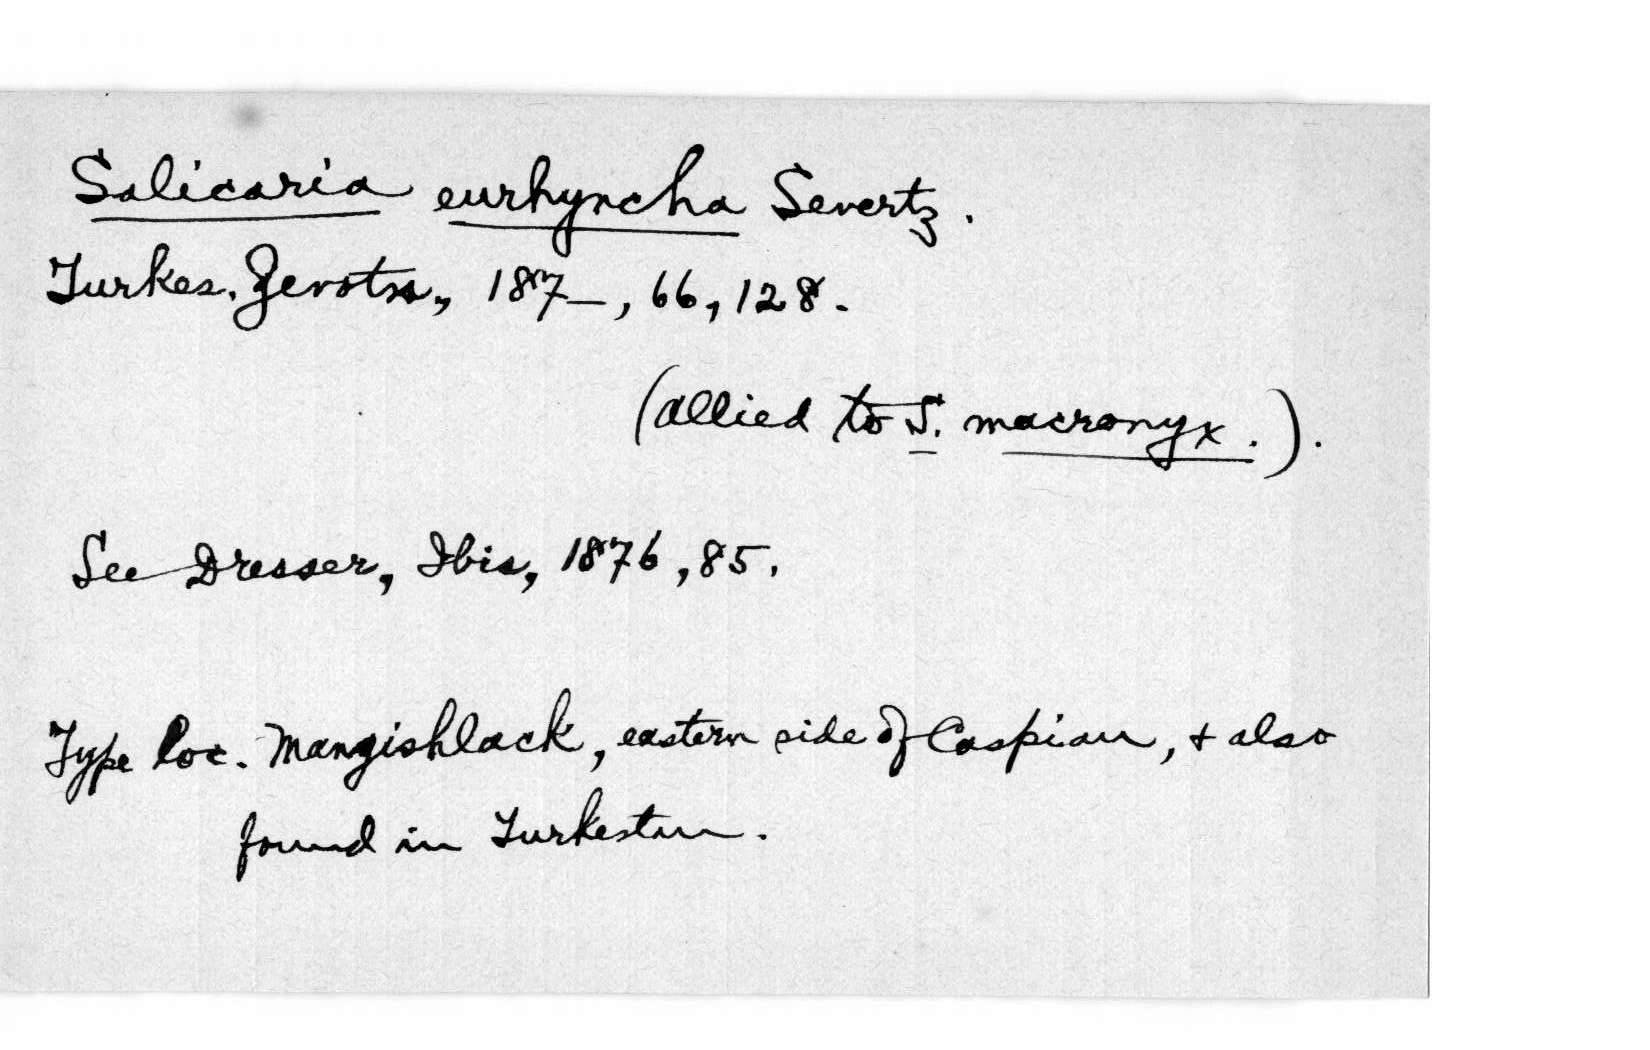 Salicaria eurhyncha Severtz.
Turkes. Jevotn., 187_, 66, 128.
(allied to S. macronyx.).
See Dresser, Ibis, 1876, 85.
Type loc. Mangishlack, eastern side of Caspian, + also
found in Turkestan.